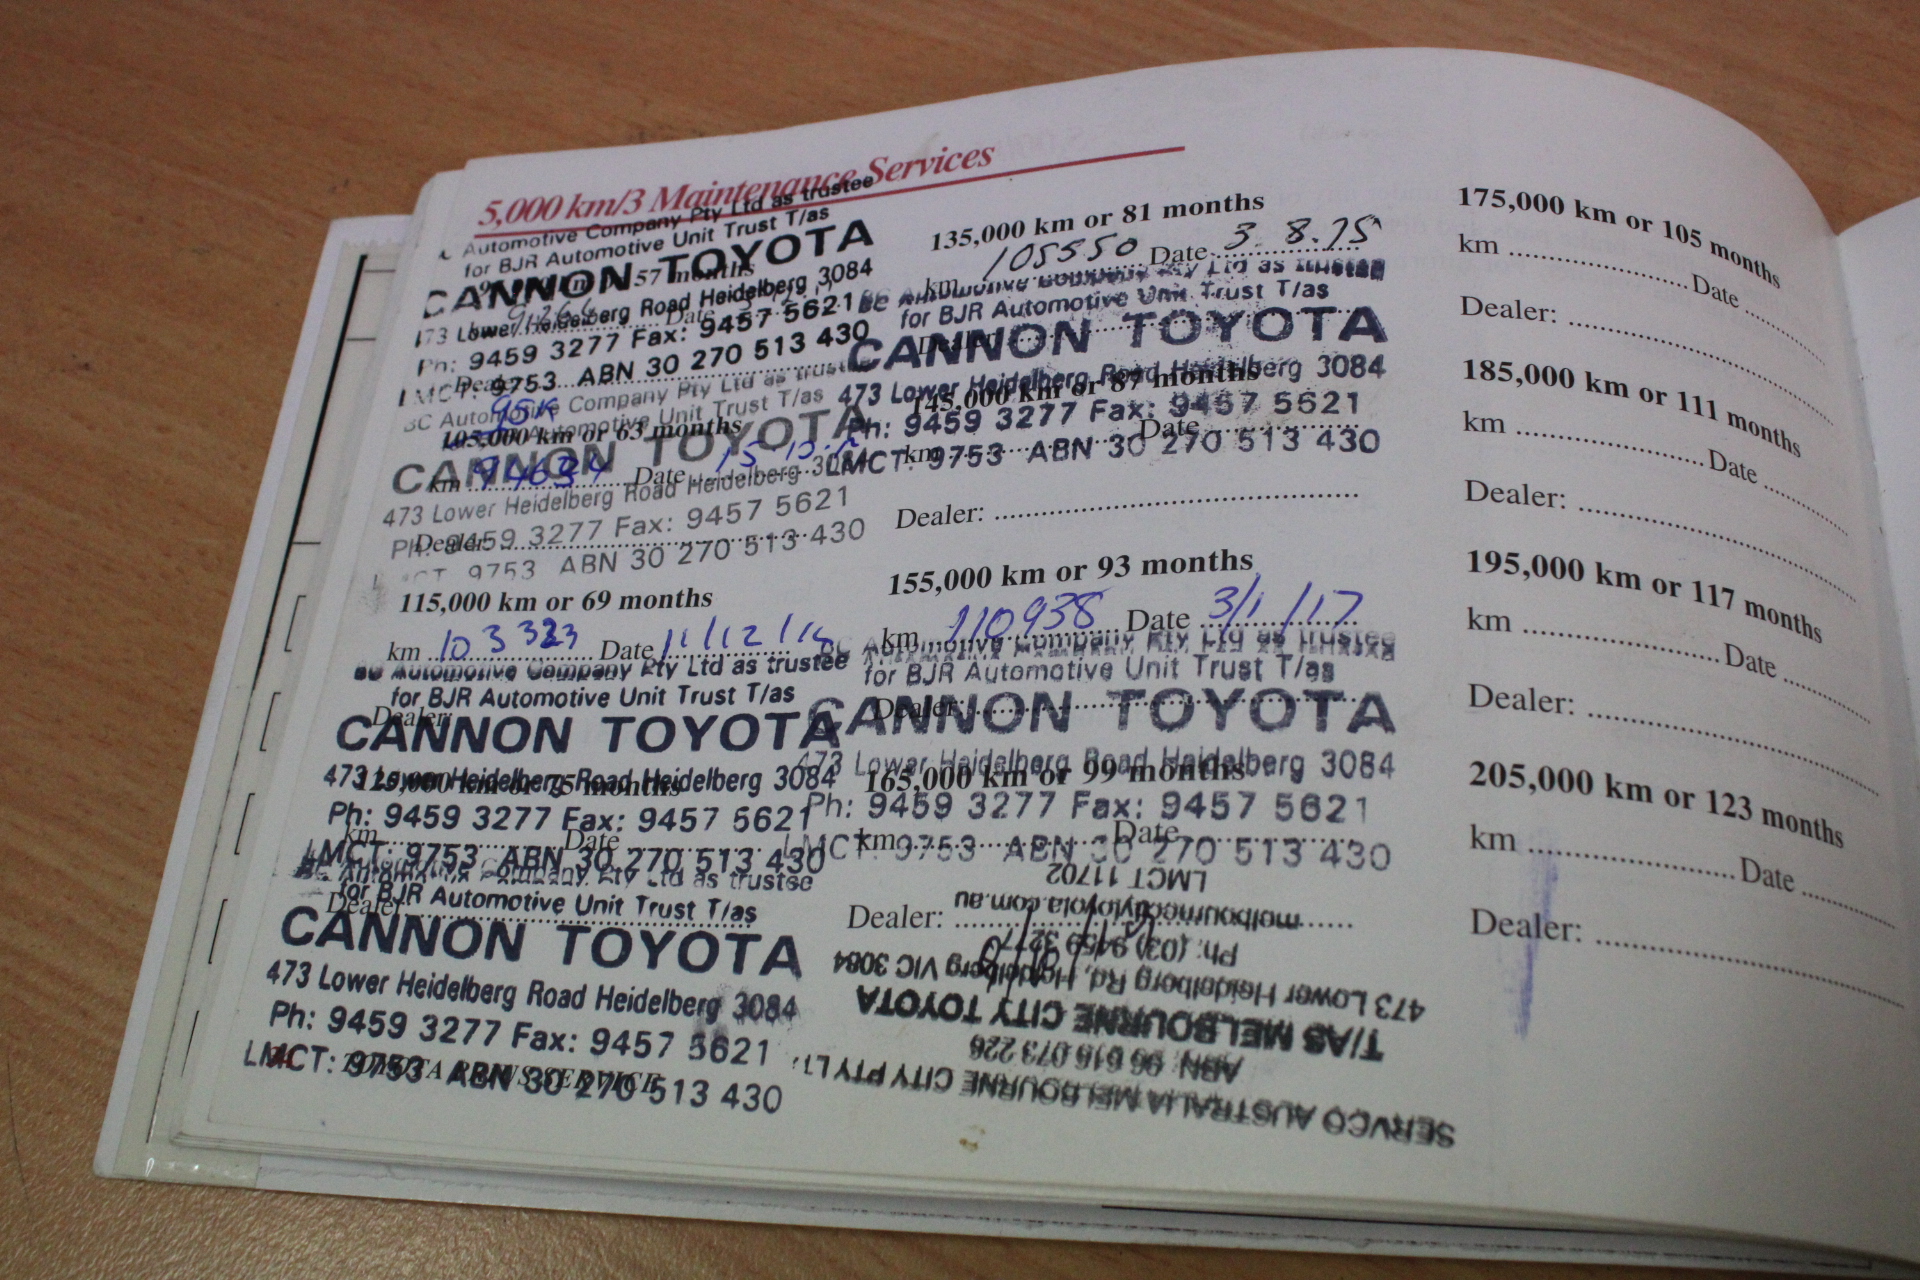 5,000 km/3 Maintenance Services
Automotive Company Pty Ltd as trustee
for BJR Automotive Unit Trust T/as
CANNON TOYOTA
57 months
473 Lower Heidelberg Road Heidelberg 3084
Date
Ph: 9459 3277 Fax: 9457 5621
LMCT: 9753 ABN 30 270 513 430
95K
BC Automotive Company Pty Ltd as trustee
Automotive Unit Trust T/as
105,000 km or 63 months
CANNON TOYOTA
km 94684 Date
473 Lower Heidelberg Road Heidelberg 3084
Ph: 9459 3277 Fax: 9457 5621
Dealer:
LMCT 9753 ABN 30 270 513 430
115,000 km or 69 months
km 103323 Date 11/12/14
BC Automotive Company Pty Ltd as trustee
for BJR Automotive Unit Trust T/as
Dealer:
CANNON TOYOTA
473 Lower Heidelberg Road Heidelberg 3084
125,000 km or 75 months
Ph: 9459 3277 Fax: 9457 5621
km Date
LMCT: 9753 ABN 30 270 513 430
BC Automotive Company Pty Ltd as trustee
for BJR Automotive Unit Trust T/as
Dealer:
CANNON TOYOTA
473 Lower Heidelberg Road Heidelberg 3084
Ph: 9459 3277 Fax: 9457 5621
LMCT: 9753 ABN 30 270 513 430
135,000 km or 81 months
km 105550 Date 3.8.15
BC Automotive Company Pty Ltd as trustee
for BJR Automotive Unit Trust T/as
CANNON TOYOTA
473 Lower Heidelberg Road Heidelberg 3084
145,000 km or 87 months
Ph: 9459 3277 Fax: 9457 5621
km Date
LMCT: 9753 ABN 30 270 513 430
Dealer:
155,000 km or 93 months
km 110938 Date 3/1/17
BC Automotive Company Pty Ltd as trustee
for BJR Automotive Unit Trust T/as
Dealer:
CANNON TOYOTA
473 Lower Heidelberg Road Heidelberg 3084
165,000 km or 99 months
Ph: 9459 3277 Fax: 9457 5621
km Date
LMCT: 9753 ABN 30 270 513 430
Dealer:
SERVCO AUSTRALIA MELBOURNE CITY PTY LT
ABN: 96 616 073 226
T/AS MELBOURNE CITY TOYOTA
473 Lower Heidelberg Rd, Heidelberg VIC 3084
Ph: (03) 9459 3277
melbournecitytoyota.com.au
LMCT 11702
175,000 km or 105 months
km Date
Dealer:
185,000 km or 111 months
km Date
Dealer:
195,000 km or 117 months
km Date
Dealer:
205,000 km or 123 months
km Date
Dealer: